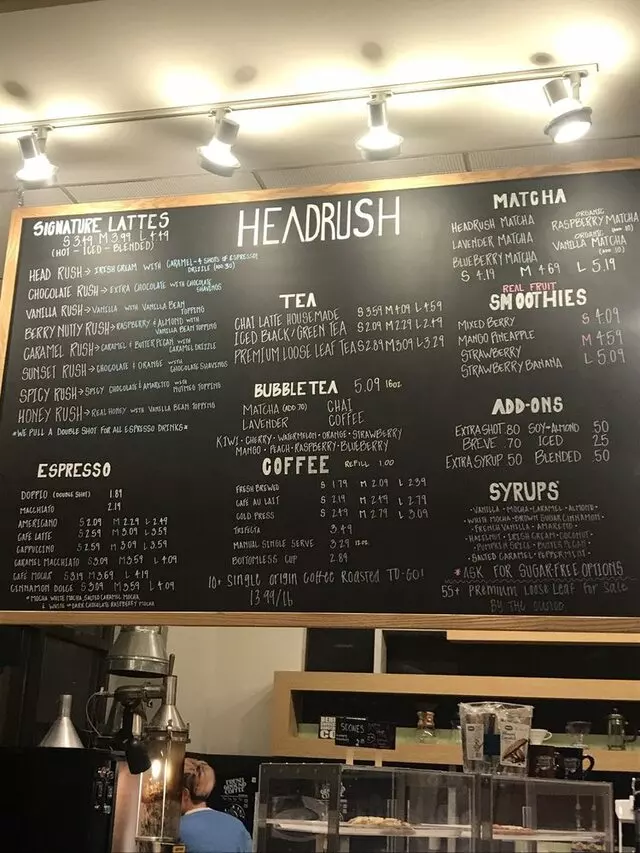 HEADRUSH
SIGNATURE LATTES
S 3.49 M 3.99 L 4.49
(HOT - ICED - BLENDED)
HEAD RUSH → IRISH CREAM WITH CARAMEL - 4 SHOTS OF ESPRESSO
DRIZZLE (ADD .30)
CHOCOLATE RUSH → EXTRA CHOCOLATE WITH CHOCOLATE
SHAVINGS
VANILLA RUSH → VANILLA WITH VANILLA BEAN
TOPPING
BERRY NUTTY RUSH → RASPBERRY & ALMOND WITH
VANILLA BEAN TOPPING
CARAMEL RUSH → CARAMEL & BUTTER PECAN WITH
CARAMEL DRIZZLE
SUNSET RUSH → CHOCOLATE & ORANGE WITH
CHOCOLATE SHAVINGS
SPICY RUSH → SPICY CHOCOLATE & AMARETTO WITH
NUTMEG TOPPING
HONEY RUSH → REAL HONEY WITH VANILLA BEAN TOPPING
*WE PULL A DOUBLE SHOT FOR ALL ESPRESSO DRINKS*
ESPRESSO
DOPPIO (DOUBLE SHOT) 1.89
MACCHIATO 2.19
AMERICANO S 2.09 M 2.29 L 2.49
CAFE LATTE S 2.59 M 3.09 L 3.59
CAPPUCCINO S 2.59 M 3.09 L 3.59
CARAMEL MACCHIATO S 3.09 M 3.59 L 4.09
CAFE MOCHA* S 3.19 M 3.69 L 4.19
CINNAMON DOLCE S 3.09 M 3.59 L 4.09
*MOCHA, WHITE MOCHA, SALTED CARAMEL MOCHA,
& WHITE OR DARK CHOCOLATE RASPBERRY MOCHA
TEA
CHAI LATTE HOUSEMADE S 3.59 M 4.09 L 4.59
ICED BLACK/GREEN TEA S 2.09 M 2.29 L 2.49
PREMIUM LOOSE LEAF TEA S 2.89 M 3.09 L 3.29
BUBBLE TEA 5.09 16oz
MATCHA (ADD .70) CHAI
LAVENDER COFFEE
KIWI · CHERRY · WATERMELON · ORANGE · STRAWBERRY
MANGO · PEACH · RASPBERRY · BLUEBERRY
COFFEE REFILL 1.00
FRESH BREWED S 1.79 M 2.09 L 2.39
CAFE AU LAIT S 2.19 M 2.49 L 2.79
COLD PRESS S 2.49 M 2.79 L 3.09
TRIFECTA 3.49
MANUAL SINGLE SERVE 3.29 12 oz.
BOTTOMLESS CUP 2.89
10+ SINGLE ORIGIN COFFEE ROASTED TO-GO!
13.99/lb
MATCHA
HEADRUSH MATCHA
LAVENDER MATCHA
BLUEBERRY MATCHA
ORGANIC
RASPBERRY MATCHA
ORGANIC
VANILLA MATCHA
S 4.19 M 4.69 L 5.19
REAL FRUIT
SMOOTHIES
MIXED BERRY S 4.09
MANGO PINEAPPLE M 4.59
STRAWBERRY L 5.09
STRAWBERRY BANANA
ADD-ONS
EXTRA SHOT .80 SOY-ALMOND .50
BREVE .70 ICED .25
EXTRA SYRUP .50 BLENDED .50
SYRUPS
· VANILLA · MOCHA · CARAMEL · ALMOND ·
WHITE MOCHA · BROWN SUGAR CINNAMON ·
· FRENCH VANILLA · AMARETTO ·
HAZELNUT · IRISH CREAM · COCONUT ·
PUMPKIN SPICE · BUTTER PECAN ·
SALTED CARAMEL · PEPPERMINT ·
*ASK FOR SUGAR-FREE OPTIONS
55+ PREMIUM LOOSE LEAF FOR SALE
BY THE OUNCE
SCONES